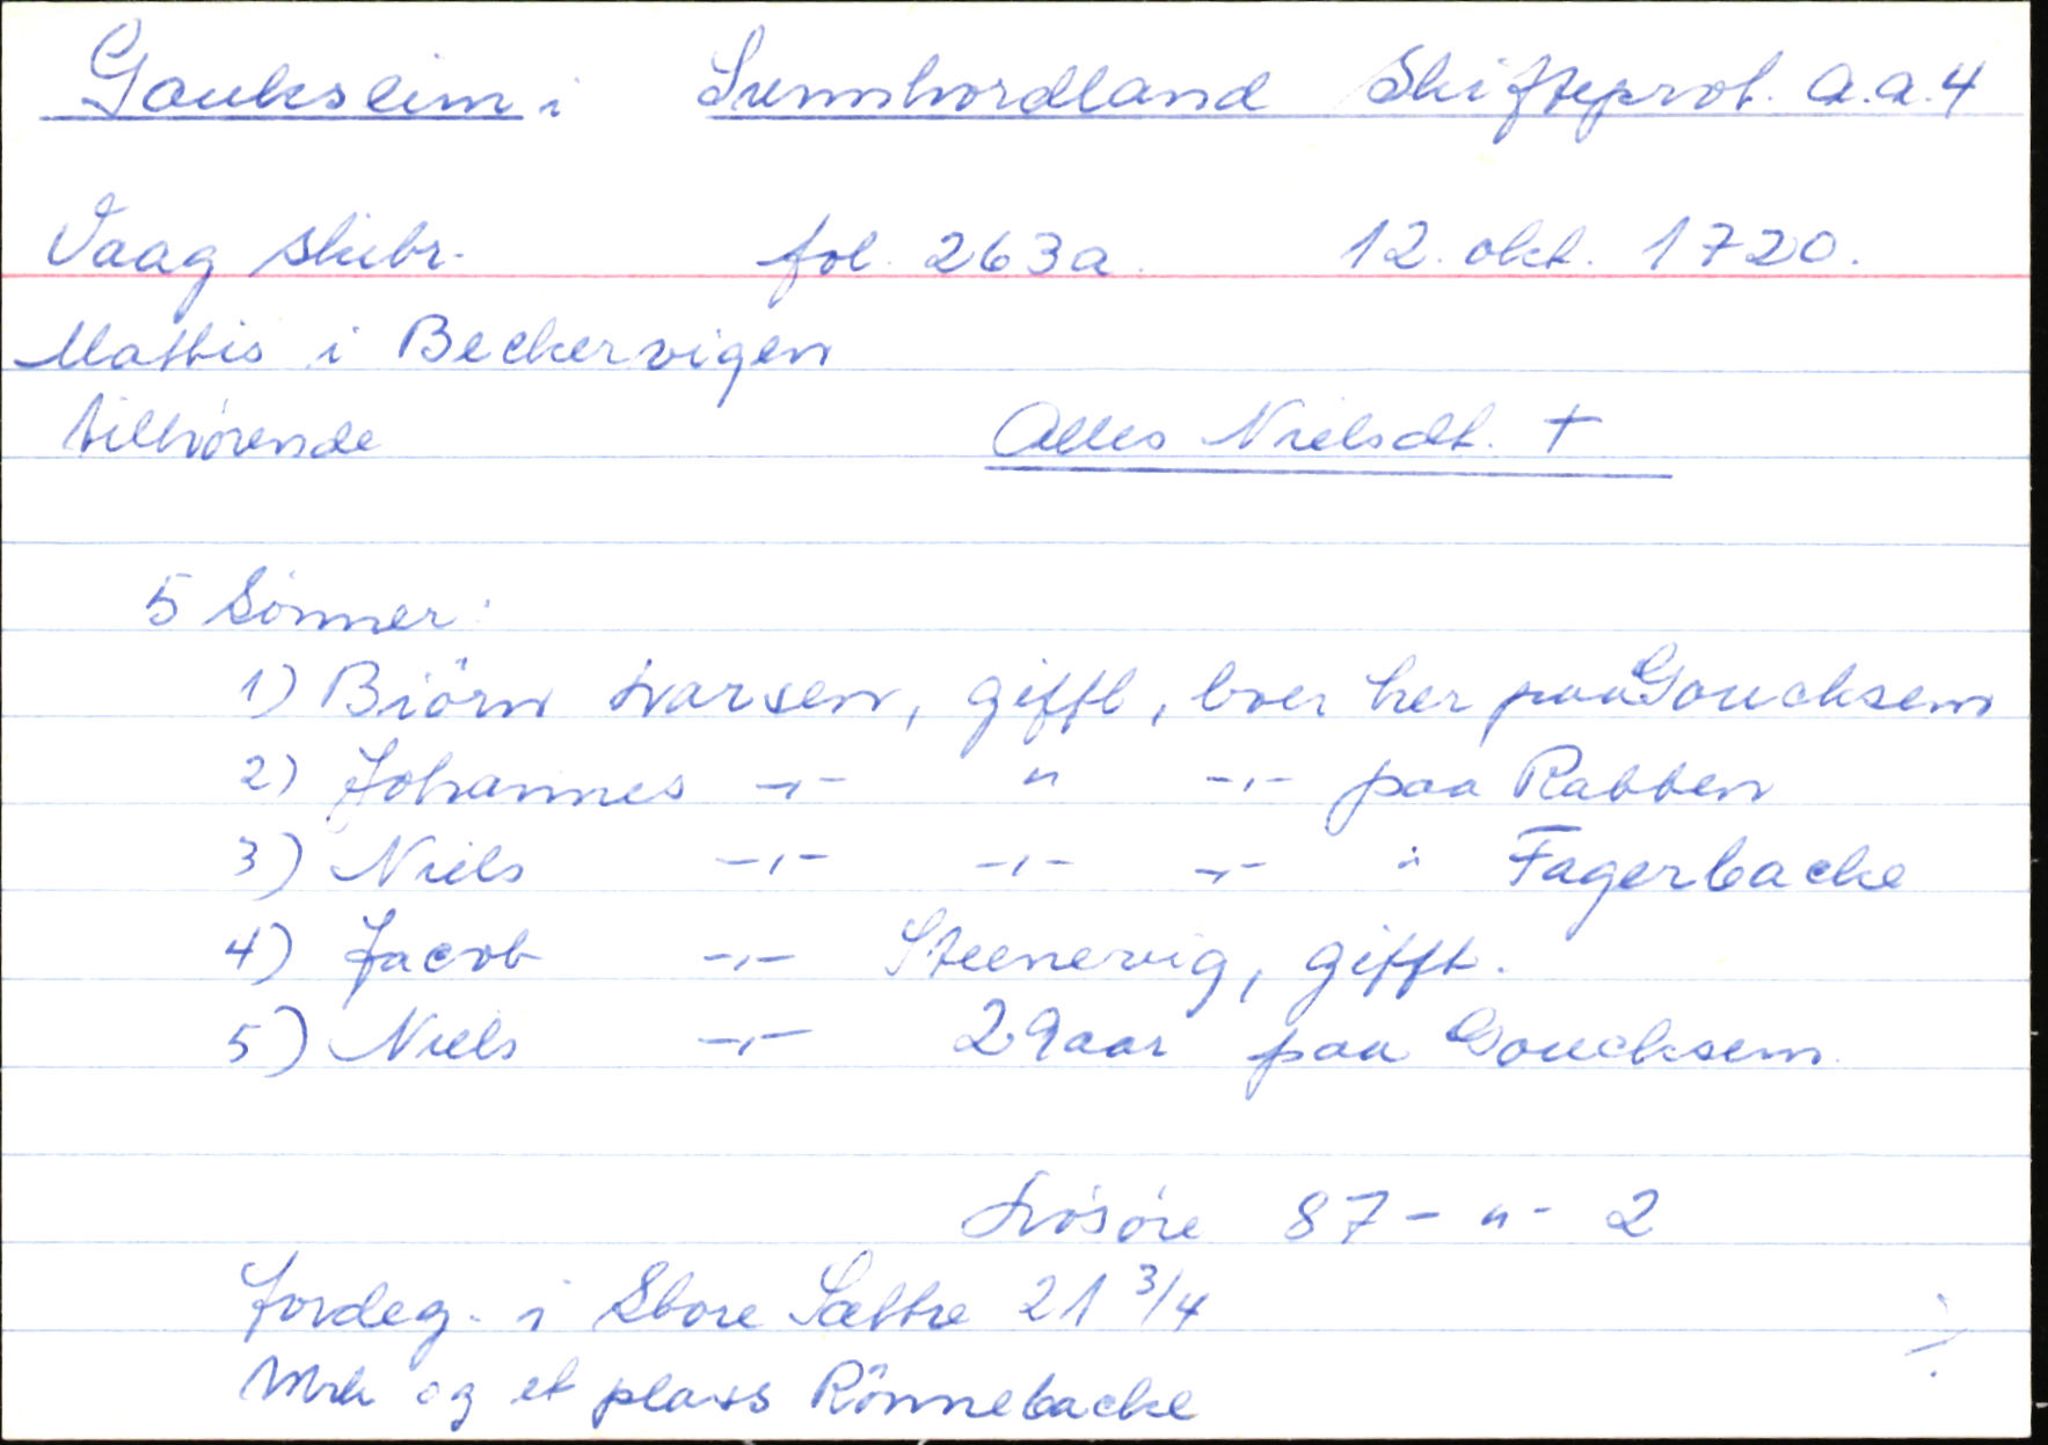 Gaukseim i Sunnhordland Skifteprot. a.a.4
Vaag skibr. fol. 263a. 12. okt. 1720.
Mattis i Beckervigen
tilhørende Alles Nielsdt. +
5 Sönner:
1) Biörn Larsen, gifft, boer her paa Goucksem
2) Johannes -,- " -,- paa Rabben
3) Niels -,- -,- -,- i Fagerbacke
4) Jacob -,- Steenevig, gifft.
5) Niels -,- 29 aar paa Goucksem.
Løsøre 87 - " - 2
Jordeg. i Store Sættre 21 3/4
Mrk og et plass Rönnebacke